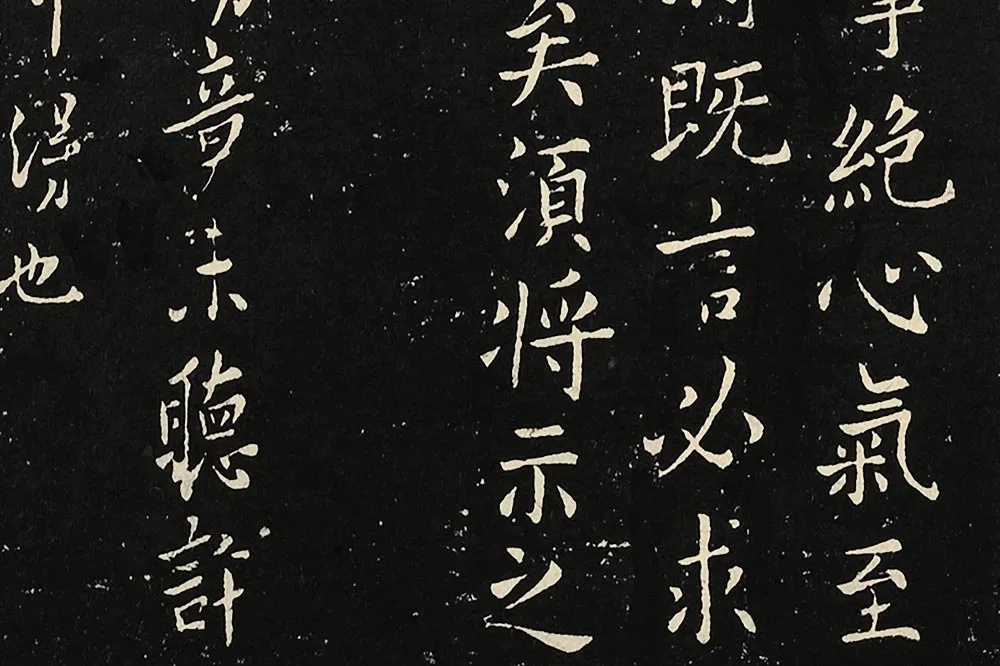 事絶心氣至
既言必求
矣須将示之
未聽許
也